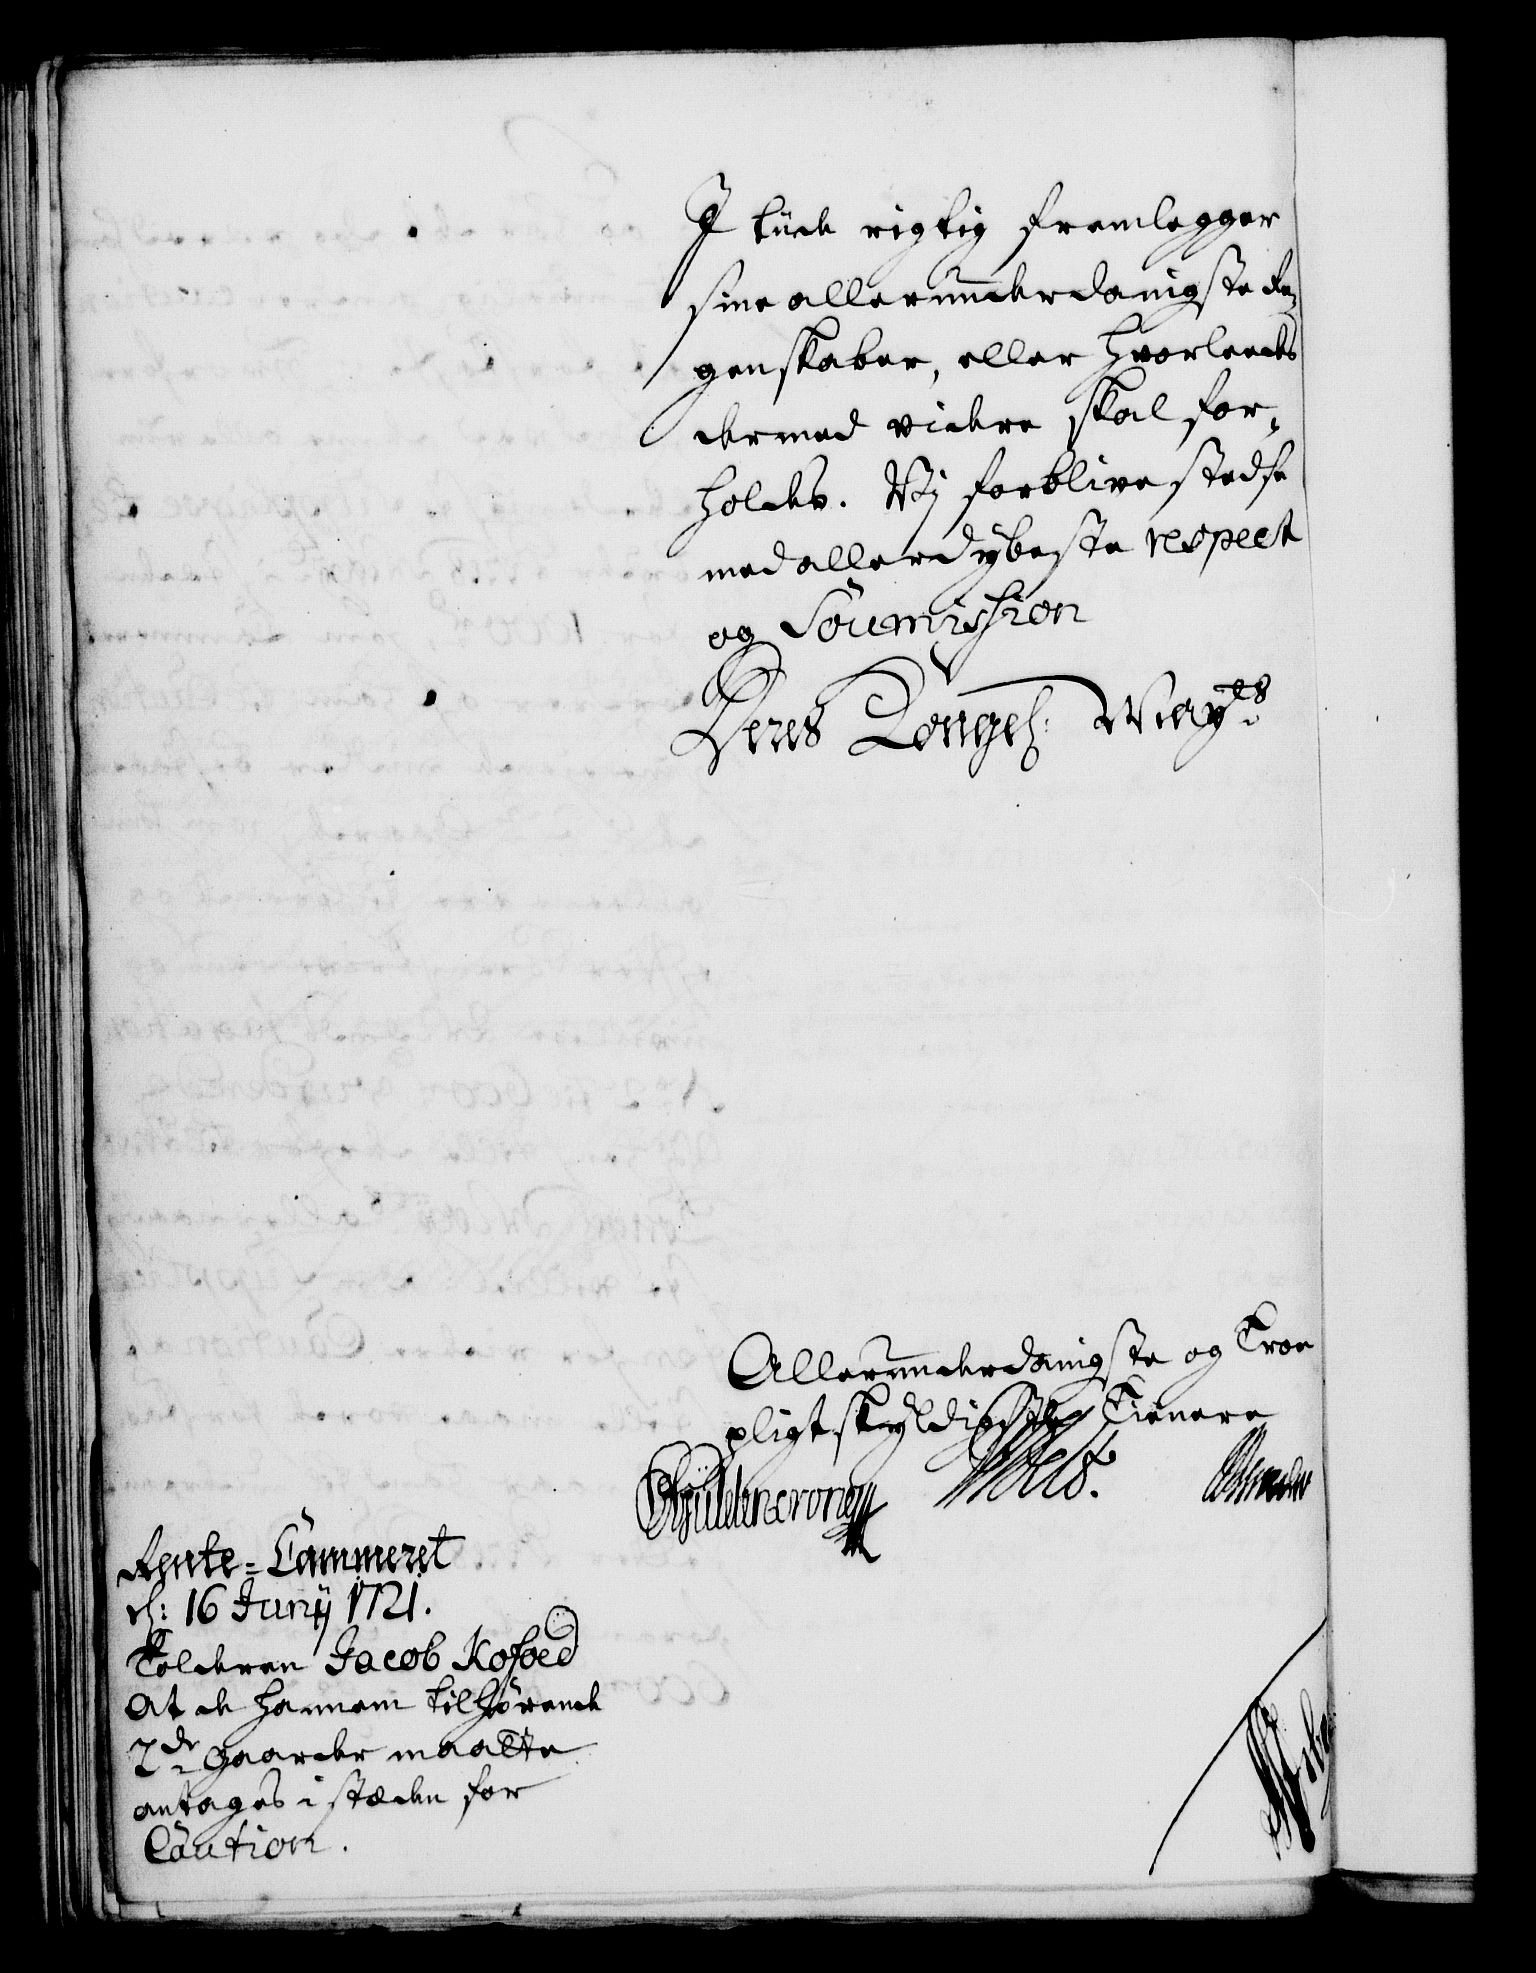 I tiide rigtig fremlegger
sine allerunderdanigste Re¬
genskaber, eller hvorleedes
dermed videre skal for¬
holdes. Vj forblive stedse
med allerdybeste respect
og Soumission
Deres Kongel: Mayts
Allerunderdanigste og Troe
pligtskyldigste Tienere
CGüldencrone
Rente-Cammeret
d: 16 Junij 1721.
Tolderen Jacob Kofoed
At de hannem tilhørende
2de gaarder maatte
antages i stæden for
Caution.